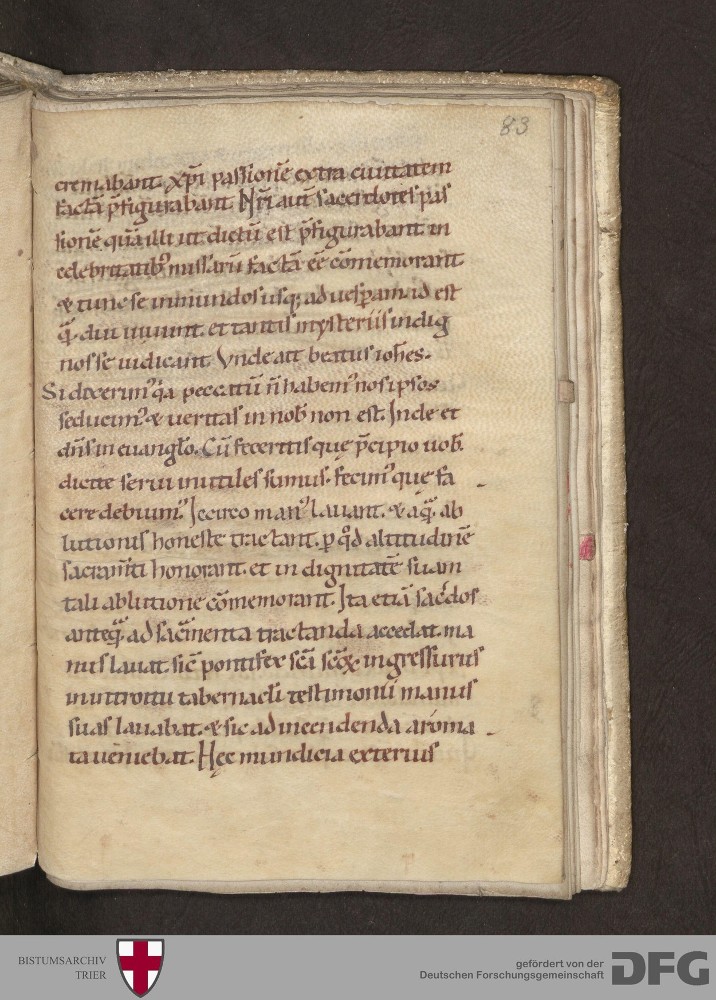 83
cremabant. xp̄i passionē extra ciuitatem
factā p̄figurabant. Nr̄i aut̄ sacerdotes pas
sionē quā illi ut dictū est p̄figurabant in
celebritatib; missarū factā eē cōmemorant
& tunc se inmundos usq; ad uesꝑam id est
q̄ diu uiuunt. et tantis mysteriis indig
nos se iudicant. Vnde ait beatus ioh̄es.
Si dixerim᷒ q̇a peccatū n̄ habem᷒ nos ipsos
seducim᷒ & ueritas in nob̄ non est. Inde et
dn̄s in euangl̄o. Cū feceritis que p̄cipio uob̄.
dicite serui inutiles sumus. fecim᷒ que fa
cere debuim᷒. Iccirco man᷒ lauant. & aq̄ ab
lutionis honeste tractant. ꝑ qd̄ altitudinē
sacram̄ti honorant. et in dignitatē suam
tali ablutione cōmemorant. Ita etiā sac̄dos
anteq̄ ad sac̄menta tractanda accedat. ma
nus lauat sic̄ pontifex sc̄a sc̄ox̨ ingressurus
in introitu tabernac̄li testimonii manus
suas lauabat. & sic ad incendenda aroma
ta ueniebat. Hęc mundicia exterius
BISTUMSARCHIV
TRIER
gefördert von der
Deutschen Forschungsgemeinschaft
DFG